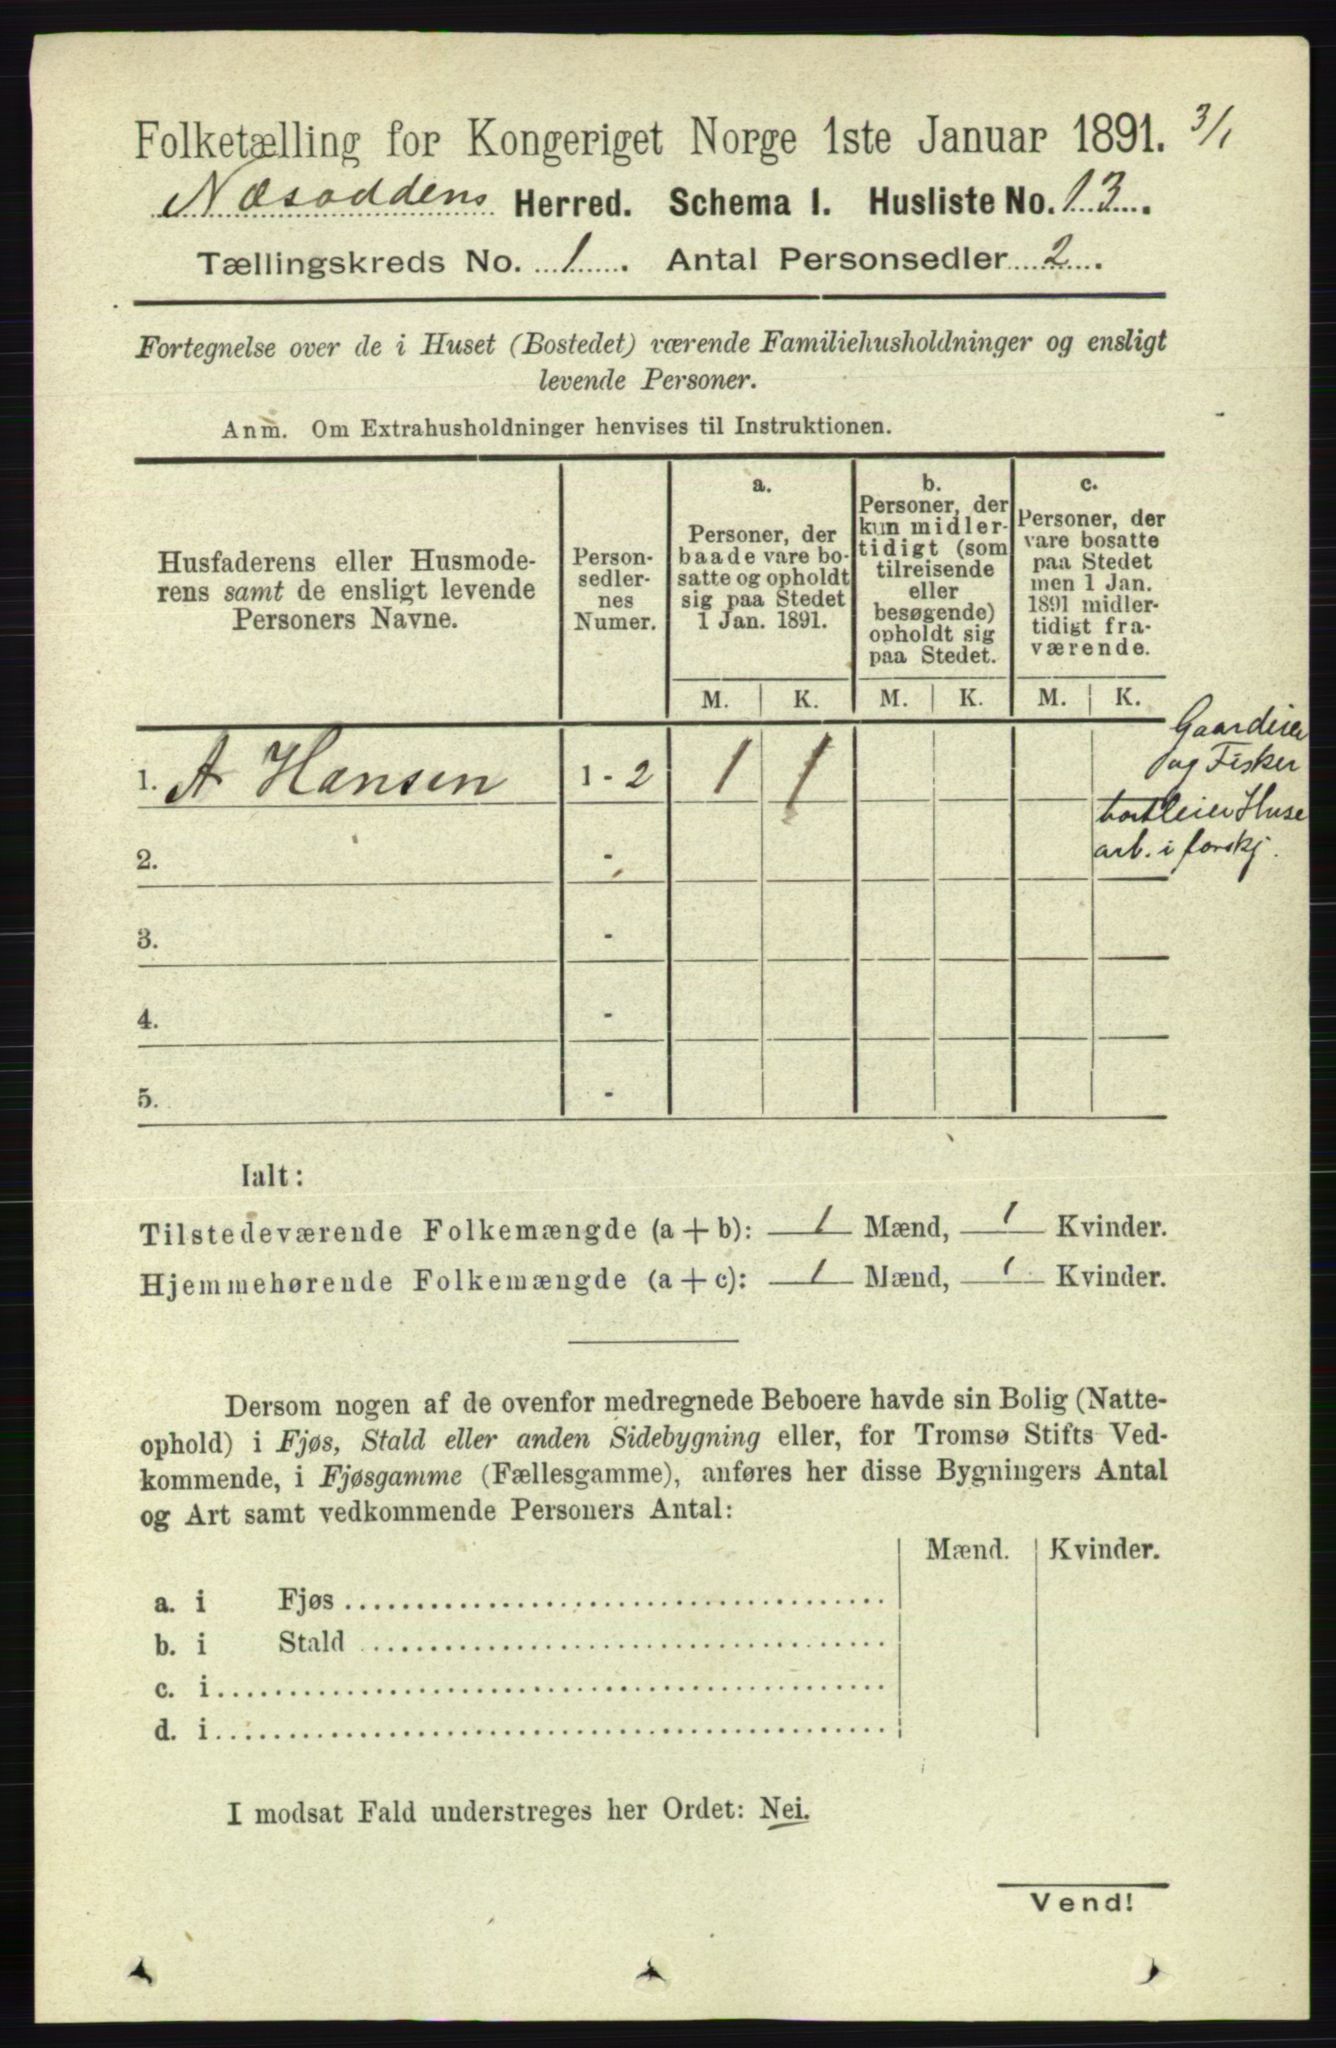 Folketælling for Kongeriget Norge 1ste Januar 1891. 3/1
Næsoddens Herred. Schema I. Husliste No. 13.
Tællingskreds No. 1. Antal Personsedler 2.
Fortegnelse over de i Huset (Bostedet) værende Familiehusholdninger og ensligt
levende Personer.
Anm. Om Extrahusholdninger henvises til Instruktionen.
Husfaderens eller Husmode-
rens samt de ensligt levende
Personers Navne.
Person-
sedler-
nes
Numer.
a.
Personer, der
baade vare bo-
satte og opholdt
sig paa Stedet
1 Jan. 1891.
b.
Personer, der
kun midler-
tidigt (som
tilreisende
eller
besøgende)
opholdt sig
paa Stedet.
c.
Personer, der
vare bosatte
paa Stedet
men 1 Jan.
1891 midler-
tidigt fra-
værende.
M. K. M. K. M. K.
1. A Hansen 1 - 2 1 1
Gaardeier
og Fisker
bortleier Huse
arb. i forskj.
2. -
3. -
4. -
5. -
Ialt:
Tilstedeværende Folkemængde (a + b): 1 Mænd, 1 Kvinder.
Hjemmehørende Folkemængde (a + c): 1 Mænd, 1 Kvinder.
Dersom nogen af de ovenfor medregnede Beboere havde sin Bolig (Natte-
ophold) i Fjøs, Stald eller anden Sidebygning eller, for Tromsø Stifts Ved-
kommende, i Fjøsgamme (Fællesgamme), anføres her disse Bygningers Antal
og Art samt vedkommende Personers Antal:
Mænd. Kvinder.
a. i Fjøs
b. i Stald
c. i
d. i
I modsat Fald understreges her Ordet: Nei.
Vend!